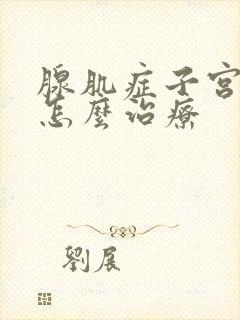 腺肌症子宫
怎麼治療
劉展